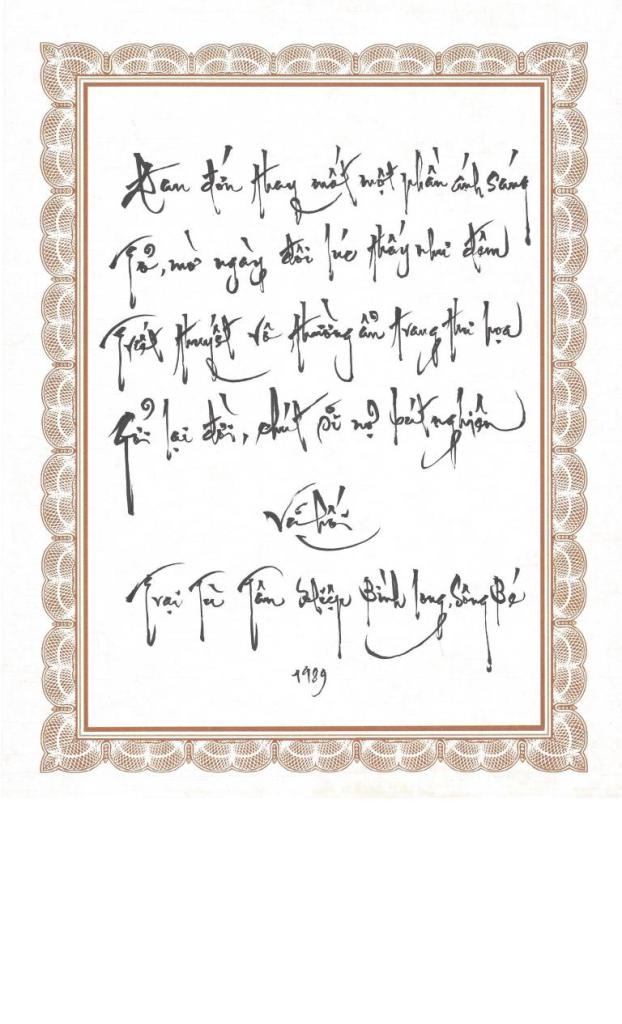 Đau đớn thay mất một phần ánh sáng
Tỏ, mờ ngày đôi lúc thấy như đêm
Triết thuyết vô thường ẩn trang thi họa
Gởi lại đời, chút sĩ nợ bút nghiên
Vũ Hối
Trại Tù Tân Hiệp Bình Long, Sông Bé
1989